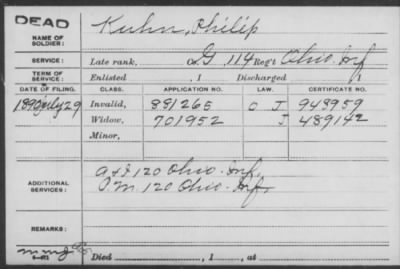 DEAD
NAME OF SOLDIER: Kuhn, Philip
SERVICE: Late rank, Co. G, 114 Reg't Ohio Inf
TERM OF SERVICE: Enlisted , 1 Discharged , 1
DATE OF FILING. CLASS. APPLICATION NO. LAW. CERTIFICATE NO.
1890 July 29 Invalid, 881265 C J 948959
Widow, 701952 J 489142
Minor,
ADDITIONAL SERVICES: 120 Ohio Inf,
120 Ohio Inf
REMARKS:
Died , 1 , at